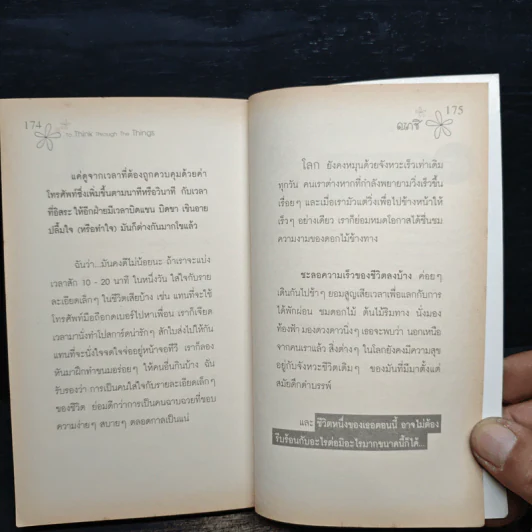 174
To Think Through The Things
แค่ดูจากเวลาที่ต้องถูกควบคุมด้วยค่า
โทรศัพท์ซึ่งเพิ่มขึ้นตามนาทีหรือวินาที กับเวลา
ที่อิสระให้อีกฝ่ายมีเวลาบิดแขน บิดขา เขินอาย
ปลื้มใจ (หรือทำใจ) มันก็ต่างกันมากโขแล้ว
ฉันว่า...มันคงดีไม่น้อยนะ ถ้าเราจะแบ่ง
เวลาสัก 10 - 20 นาที ในหนึ่งวัน ใส่ใจกับราย
ละเอียดเล็กๆ ในชีวิตเสียบ้าง เช่น แทนที่จะใช้
โทรศัพท์มือถือกดเบอร์ไปหาเพื่อน เราก็เจียด
เวลามานั่งทำโปสการ์ดน่ารักๆ สักใบส่งไปให้กัน
แทนที่จะนั่งใจจดใจจ่ออยู่หน้าจอทีวี เราก็ลอง
หันมาฝึกทำขนมอร่อยๆ ให้คนอื่นกินบ้าง ฉัน
รับรองว่า การเป็นคนใส่ใจกับรายละเอียดเล็กๆ
ของชีวิต ย่อมดีกว่าการเป็นคนฉาบฉวยที่ชอบ
ความง่ายๆ สบายๆ ตลอดกาลเป็นแน่
175
โลก ยังคงหมุนด้วยจังหวะเร็วเท่าเดิม
ทุกวัน คนเราต่างหากที่กำลังพยายามวิ่งเร็วขึ้น
เรื่อยๆ และเมื่อเรามัวแต่วิ่งเพื่อไปข้างหน้าให้
เร็วๆ อย่างเดียว เราก็ย่อมหมดโอกาสได้ชื่นชม
ความงามของดอกไม้ข้างทาง
ชะลอความเร็วของชีวิตลงบ้าง ค่อยๆ
เดินกันไปช้าๆ ยอมสูญเสียเวลาเพื่อแลกกับการ
ได้พักผ่อน ชมดอกไม้ ต้นไม้ริมทาง นั่งมอง
ท้องฟ้า มองดวงดาวนิ่งๆ เธอจะพบว่า นอกเหนือ
จากคนเราแล้ว สิ่งต่างๆ ในโลกยังคงมีความสุข
อยู่กับจังหวะชีวิตเดิมๆ ของมันที่มีมาตั้งแต่
สมัยดึกดำบรรพ์
และ ชีวิตหนึ่งของเธอตอนนี้ อาจไม่ต้อง
รีบร้อนกับอะไรต่อมิอะไรมากขนาดนี้ก็ได้...